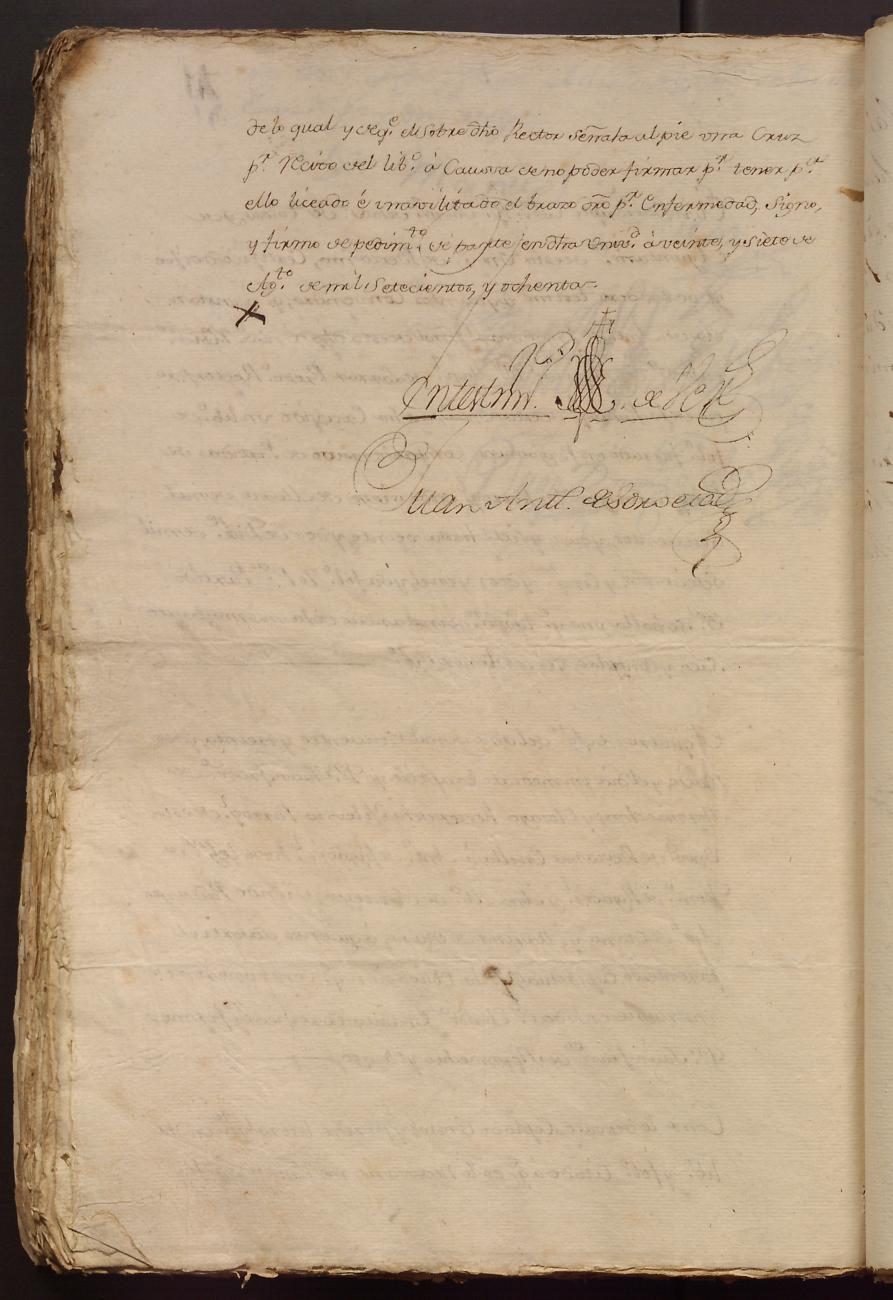 de lo qual y de q.e el sobre dho Rector señala al pie vna Cruz
p.r Recivo del lib.o á Caussa de no poder firmar p.r tener p.a
ello liceado é inavilitado el brazo dro p.r Enfermedad, Signo,
y firmo de pedim.to de parte en dha Vniv.d á veinte, y siete de
Ag.to de mil Setecientos, y ochenta.
X
En testim.o de V.d
Juan Ant.o de